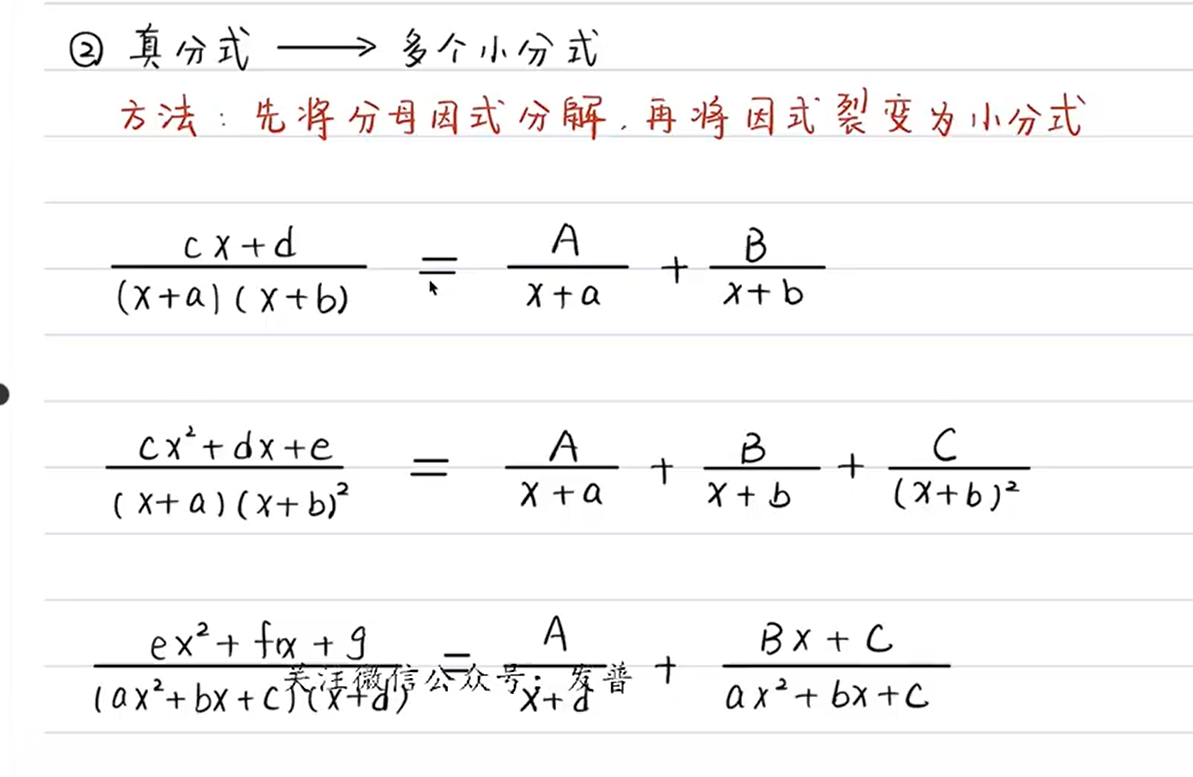 ② 真分式 ⟶ 多个小分式
方法：先将分母因式分解，再将因式裂变为小分式
(cx+d)/((x+a)(x+b)) = A/(x+a) + B/(x+b)
(cx²+dx+e)/((x+a)(x+b)²) = A/(x+a) + B/(x+b) + C/(x+b)²
(ex²+fx+g)/((ax²+bx+c)(x+d)) = A/(x+d) + (Bx+C)/(ax²+bx+c)
关注微信公众号：发普